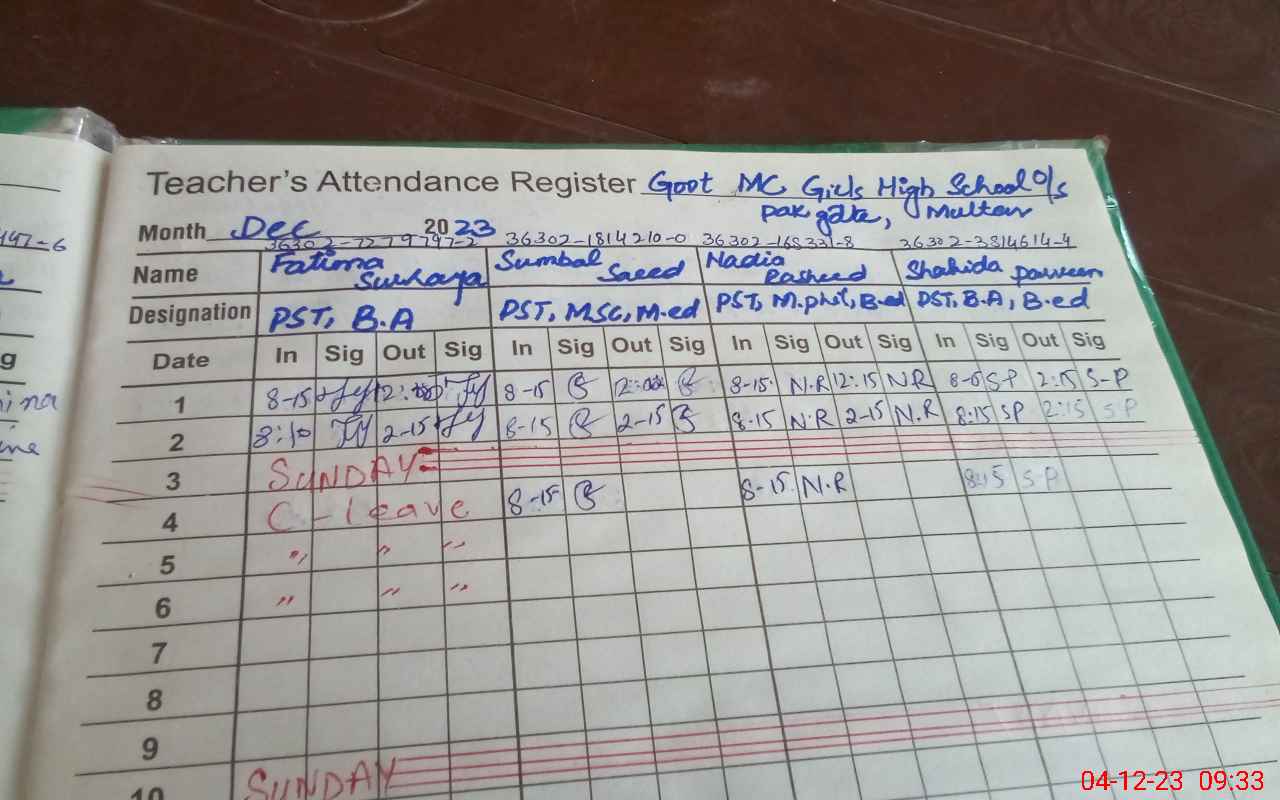 Teacher's Attendance Register Govt MC Girls High School O/s
Pak gate, Multan
Month Dec 2023
36302-7279797-2 36302-1814210-0 36302-168331-8 36302-3814614-4
Name Fatima Surraya Sumbal Saeed Nadia Rasheed Shahida Parveen
Designation PST, B.A PST, MSC, M.ed PST, M.phil, B.ed PST, B.A, B.ed
Date In Sig Out Sig In Sig Out Sig In Sig Out Sig In Sig Out Sig
1 8-15 8-15 8-15 N.R 12:15 NR S-P 2:15 S-P
2 8:10 2-15 8-15 2-15 8-15 N.R 2-15 N.R 8:15 SP 2:15 SP
3 SUNDAY
4 C-leave 8-15 8-15 N.R 8:15 S-P
5 " " "
6 " " "
7
8
9
10 SUNDAY
147-6
g
04-12-23 09:33